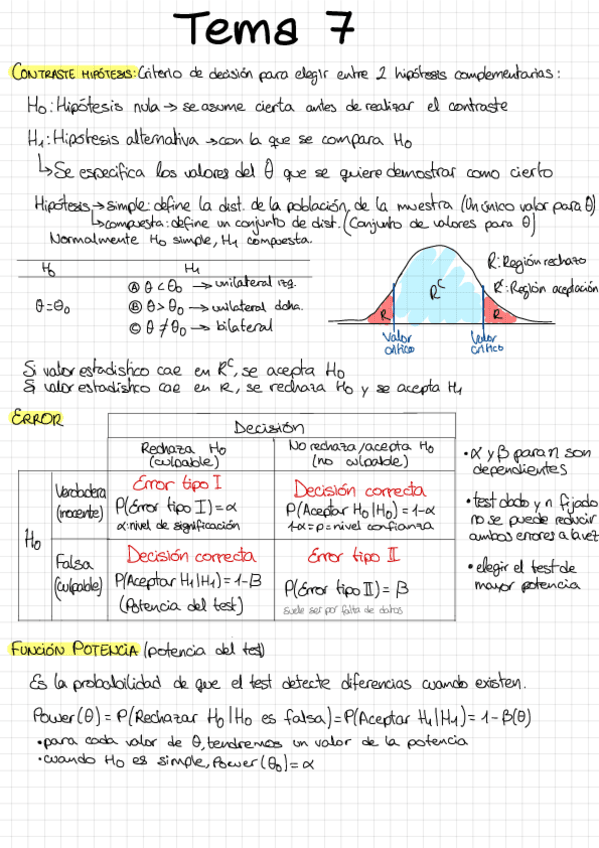 Tema 7
CONTRASTE HIPÓTESIS: Criterio de decisión para elegir entre 2 hipótesis complementarias:
H₀: Hipótesis nula → se asume cierta antes de realizar el contraste
H₁: Hipótesis alternativa → con la que se compara H₀
↳ Se especifica los valores del θ que se quiere demostrar como cierto
Hipótesis → simple: define la dist. de la población de la muestra (Un único valor para θ)
↳ compuesta: define un conjunto de dist. (Conjunto de valores para θ)
Normalmente H₀ simple, H₁ compuesta.
H₀ H₁
θ=θ₀
Ⓐ θ < θ₀ → unilateral izq.
Ⓑ θ > θ₀ → unilateral dcha.
Ⓒ θ ≠ θ₀ → bilateral
R Rᶜ R
Valor crítico
Valor crítico
R: Región rechazo
Rᶜ: Región aceptación
Si valor estadístico cae en Rᶜ, se acepta H₀
Si valor estadístico cae en R, se rechaza H₀ y se acepta H₁
ERROR
Decisión
Rechaza H₀ (culpable)
No rechaza/acepta H₀ (no culpable)
H₀
Verdadera (inocente)
Error tipo I
P(Error tipo I) = α
α: nivel de significación
Decisión correcta
P(Aceptar H₀|H₀) = 1-α
1-α = p = nivel confianza
Falsa (culpable)
Decisión correcta
P(Aceptar H₁|H₁) = 1-β
(Potencia del test)
Error tipo II
P(Error tipo II) = β
suele ser por falta de datos
• α y β para n son dependientes
• test dado y n fijado no se puede reducir ambos errores a la vez
• elegir el test de mayor potencia
FUNCIÓN POTENCIA (potencia del test)
Es la probabilidad de que el test detecte diferencias cuando existen.
Power(θ) = P(Rechazar H₀|H₀ es falsa) = P(Aceptar H₁|H₁) = 1-β(θ)
• para cada valor de θ, tendremos un valor de la potencia
• cuando H₀ es simple, Power(θ₀) = α